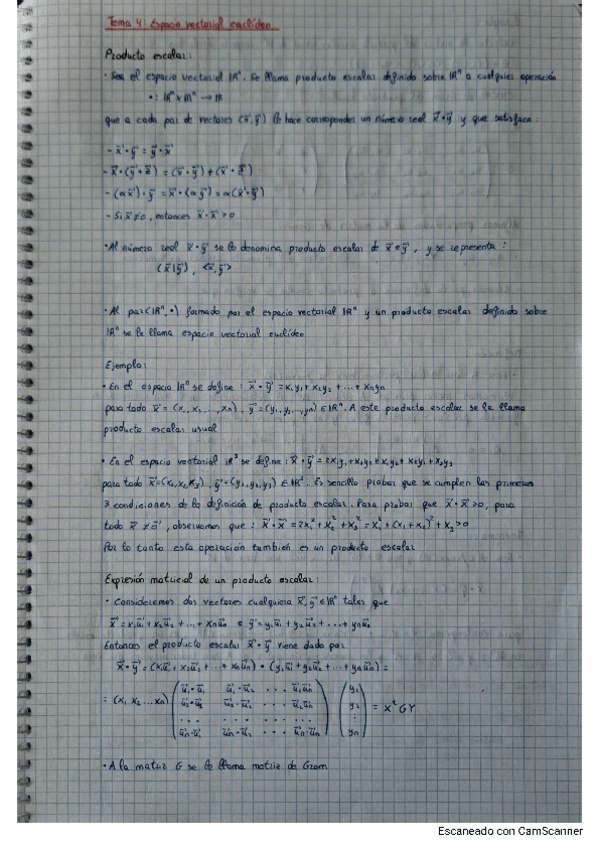 Tema 4: Espacio vectorial euclídeo
Producto escalar:
· Sea el espacio vectorial ℝⁿ. Se llama producto escalar definido sobre ℝⁿ a cualquier operación
• : ℝⁿ x ℝⁿ → ℝ
que a cada par de vectores (x⃗, y⃗) le hace corresponder un número real x⃗·y⃗ y que satisface:
- x⃗·y⃗ = y⃗·x⃗
- x⃗·(y⃗+z⃗) = (x⃗·y⃗) + (x⃗·z⃗)
- (αx⃗)·y⃗ = x⃗·(αy⃗) = α(x⃗·y⃗)
- Si x⃗≠0, entonces x⃗·x⃗ > 0
· Al número real x⃗·y⃗ se le denomina producto escalar de x⃗ e y⃗, y se representa:
(x⃗|y⃗), <x⃗,y⃗>
· Al par (ℝⁿ, •) formado por el espacio vectorial ℝⁿ y un producto escalar definido sobre
ℝⁿ se le llama espacio vectorial euclídeo
Ejemplo:
· En el espacio ℝⁿ se define: x⃗·y⃗ = x₁y₁ + x₂y₂ + ... + xₙyₙ
para todo x⃗ = (x₁, x₂, ..., xₙ), y⃗ = (y₁, y₂, ..., yₙ) ∈ ℝⁿ. A este producto escalar se le llama
producto escalar usual
· En el espacio vectorial ℝ³ se define: x⃗·y⃗ = 2x₁y₁ + x₂y₂ + x₁y₂ + x₂y₁ + x₃y₃
para todo x⃗ = (x₁,x₂,x₃), y⃗ = (y₁,y₂,y₃) ∈ ℝ³. Es sencillo probar que se cumplen las primeras
3 condiciones de la definición de producto escalar. Para probar que x⃗·x⃗ > 0, para
todo x⃗ ≠ 0⃗, observemos que: x⃗·x⃗ = 2x₁² + x₂² + x₃² = x₁² + (x₁ + x₂)² + x₃ > 0
Por lo tanto esta operación también es un producto escalar
Expresión matricial de un producto escalar:
· Consideremos dos vectores cualquiera x⃗, y⃗ ∈ ℝⁿ tales que
x⃗ = x₁u⃗₁ + x₂u⃗₂ + ... + xₙu⃗ₙ e y⃗ = y₁u⃗₁ + y₂u⃗₂ + ... + yₙu⃗ₙ
Entonces el producto escalar x⃗·y⃗ viene dado por
x⃗·y⃗ = (x₁u⃗₁ + x₂u⃗₂ + ... + xₙu⃗ₙ) • (y₁u⃗₁ + y₂u⃗₂ + ... + yₙu⃗ₙ) =
u⃗₁·u⃗₁ u⃗₁·u⃗₂ ... u⃗₁·u⃗ₙ y₁
= (x₁ x₂ ... xₙ) u⃗₂·u⃗₁ u⃗₂·u⃗₂ ... u⃗₂·u⃗ₙ y₂ = Xᵗ G Y
... ... ... ... ⋮
u⃗ₙ·u⃗₁ u⃗ₙ·u⃗₂ ... u⃗ₙ·u⃗ₙ yₙ
· A la matriz G se le llama matriz de Gram
Escaneado con CamScanner